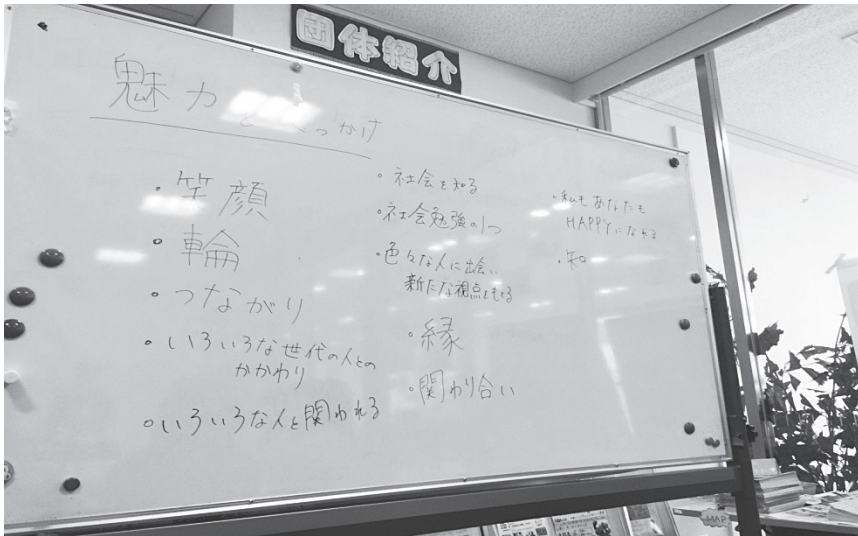 団体紹介
魅力ときっかけ
・笑顔
・輪
・つながり
・いろいろな世代の人との
かかわり
・いろいろな人と関われる
・社会を知る
・社会勉強の1つ
・色々な人に出会い
新たな視点をもてる
・縁
・関わり合い
・私もあなたも
HAPPYになれる
・知
MAP